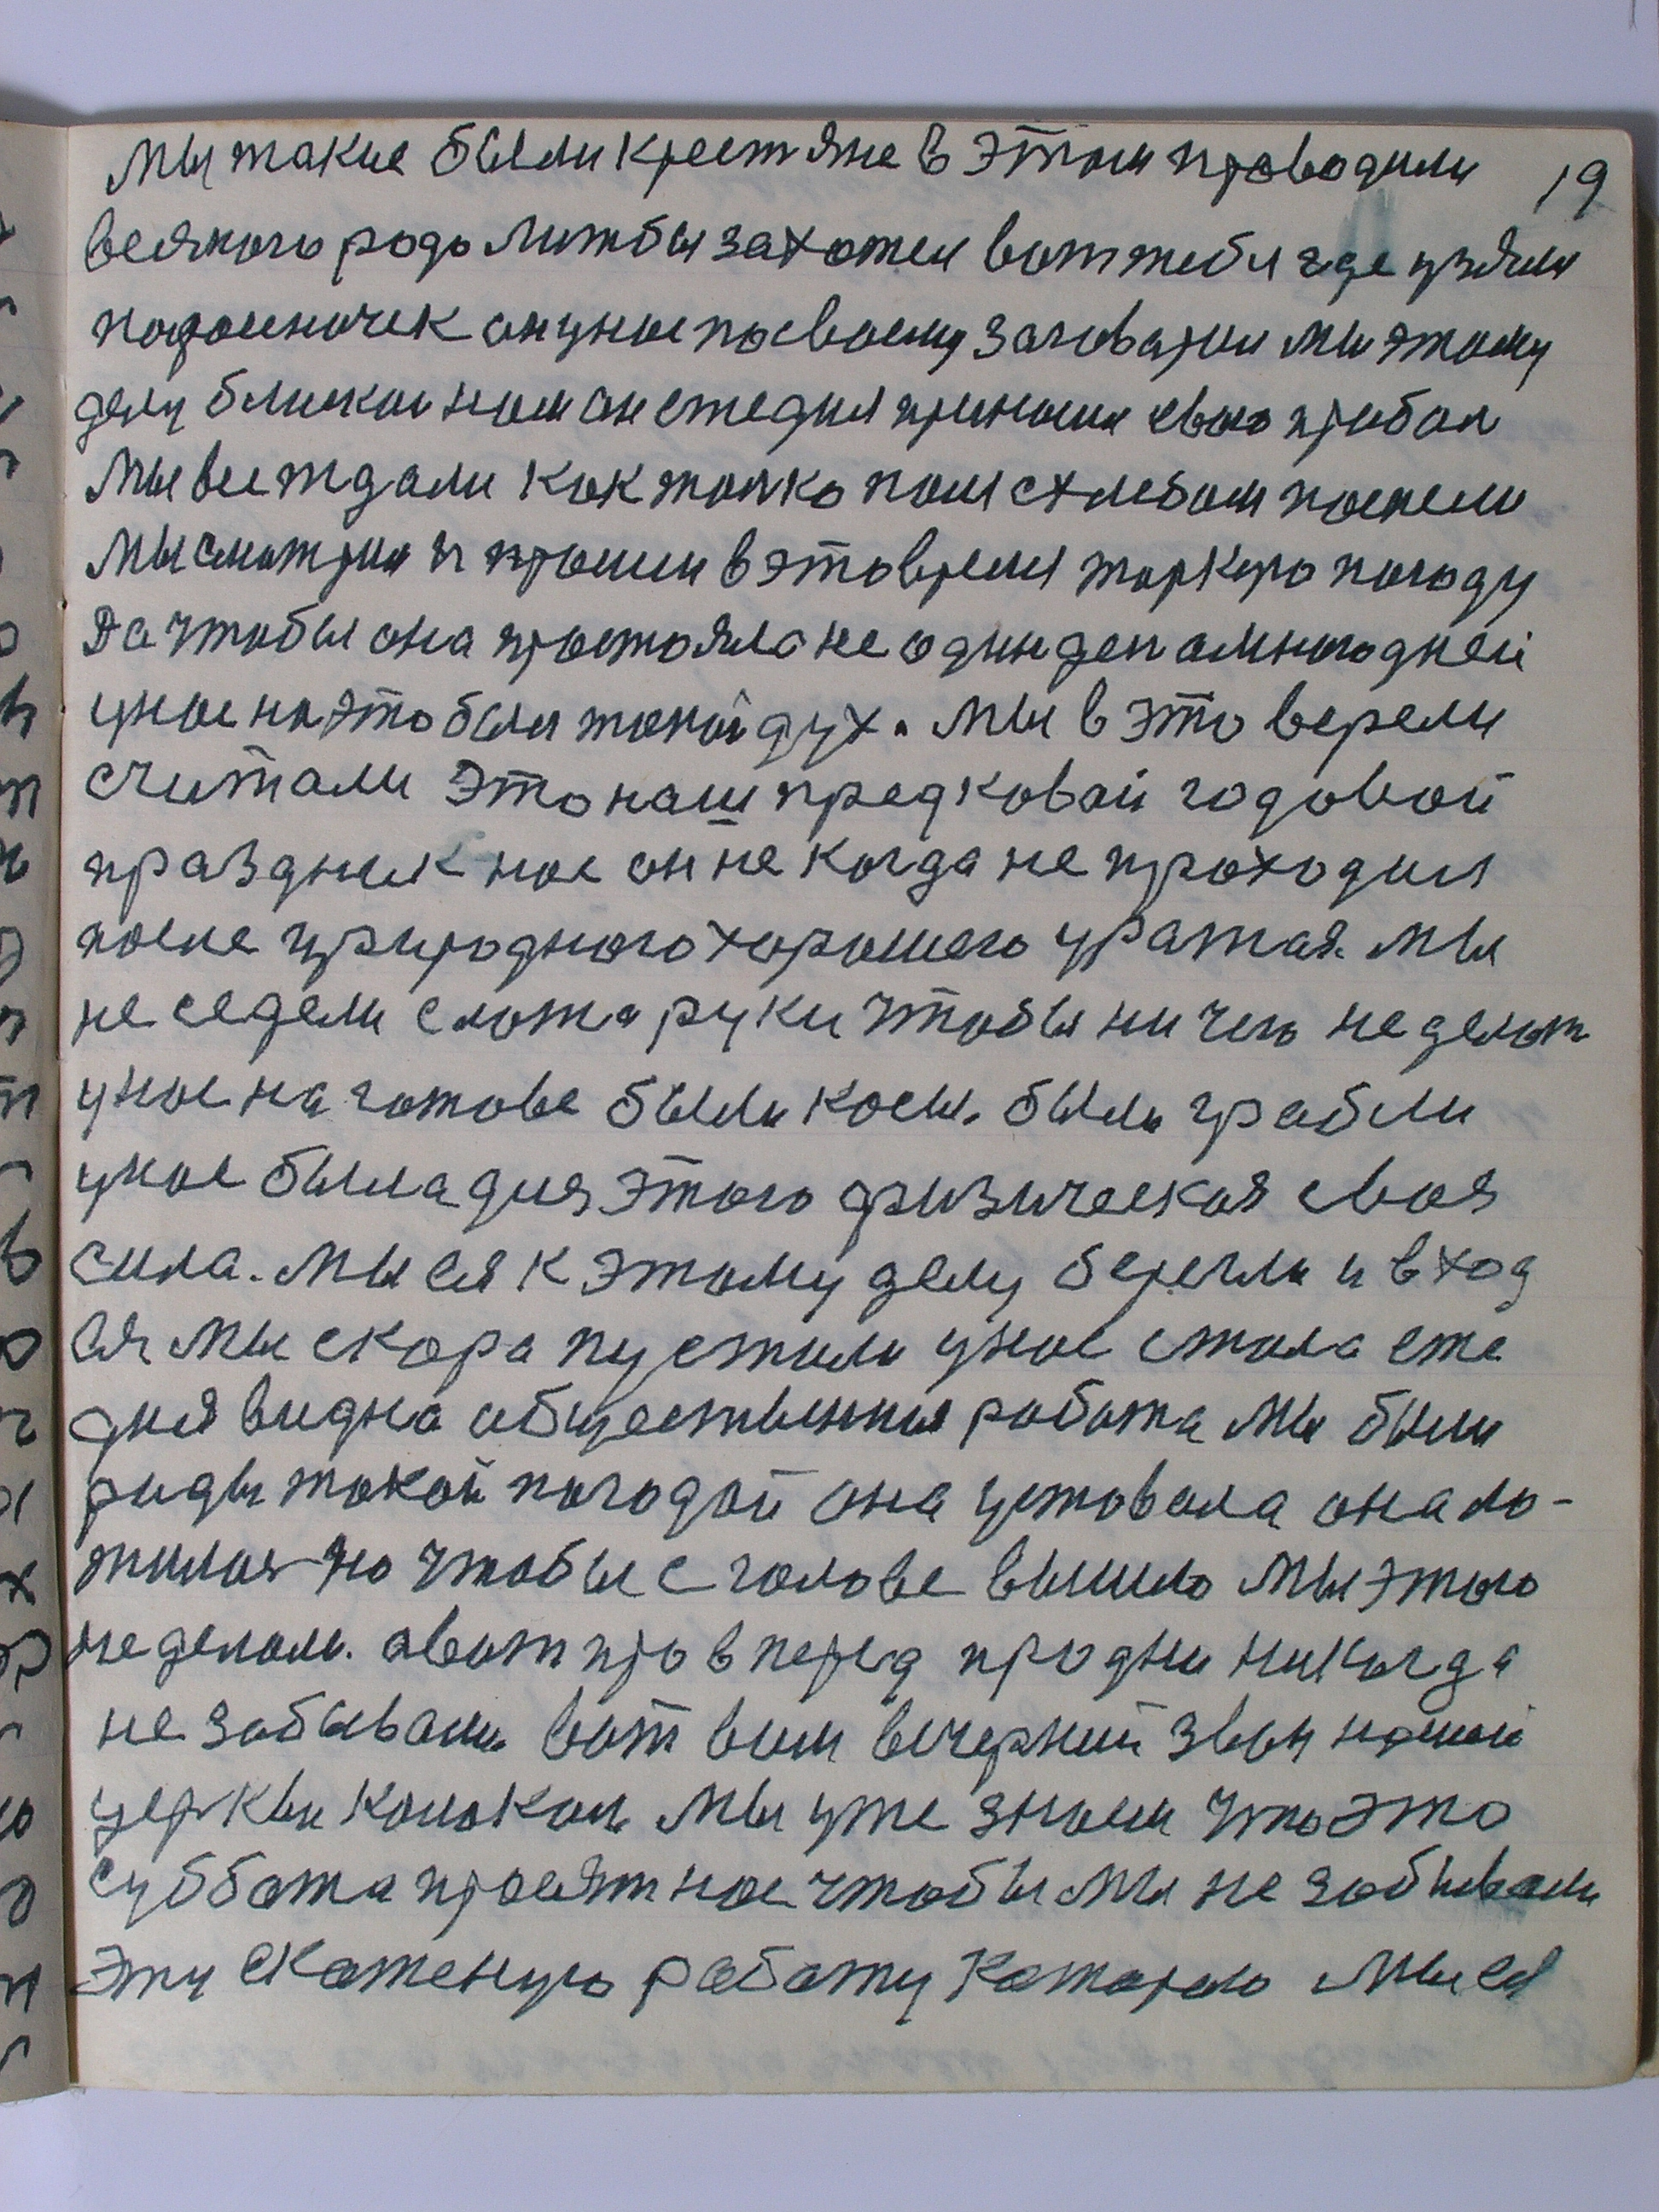 мы такие были крестяне в этом проводили 19
всякого родо лижбы захотел вот тебя где узяли
подсиночек он унас посвоему заговарил мы этому
делу близкои нам он ежедня приносил свою прибал
Мы все ждали как толко поля схлебом поспели
мы смотрим и просим в этовремя жаркую погоду
Да чтобы она простояла не один ден амногодней
унас на это был такой дух. Мы в это верели
считали Это наш предковой годовой
праздник нас он не когда не проходил
после природного хорошего уражая. Мы
не седели сложа руки чтобы ни чего не делат
унас на готове были косы. были грабли
унас была для этого физическая своя
сила. Мы ея к этому делу берегли и в ход
ея мы скора пустили унас стала еже
дня видна общественная работа мы были
рады такой погодой она уставала она ло-
жилася но чтобы с голове вышло мы этого
не делали. а вот про вперед про дни никогда
не забывали вот вам вечерний звон нашей
церквы колокол. Мы уже знаем что это
суббота просят нас чтобы мы не забывали
Эту скаженую работу каторую мы ея